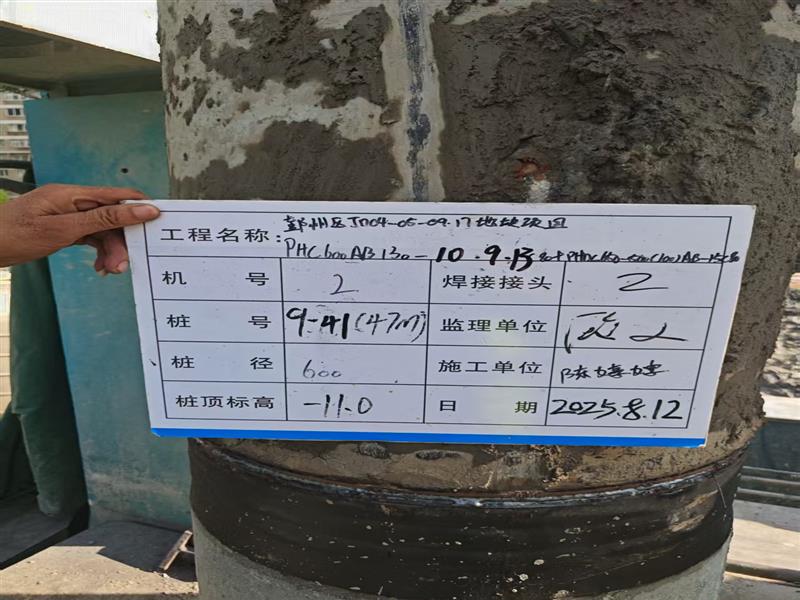 工程名称: 鄞州区JD04-05-09.17地块项目
PHC600AB130-10.9.13
机 号 2 焊接接头 2
桩 号 9-41(47m) 监理单位
桩 径 600 施工单位
桩顶标高 -11.0 日 期 2025.8.12